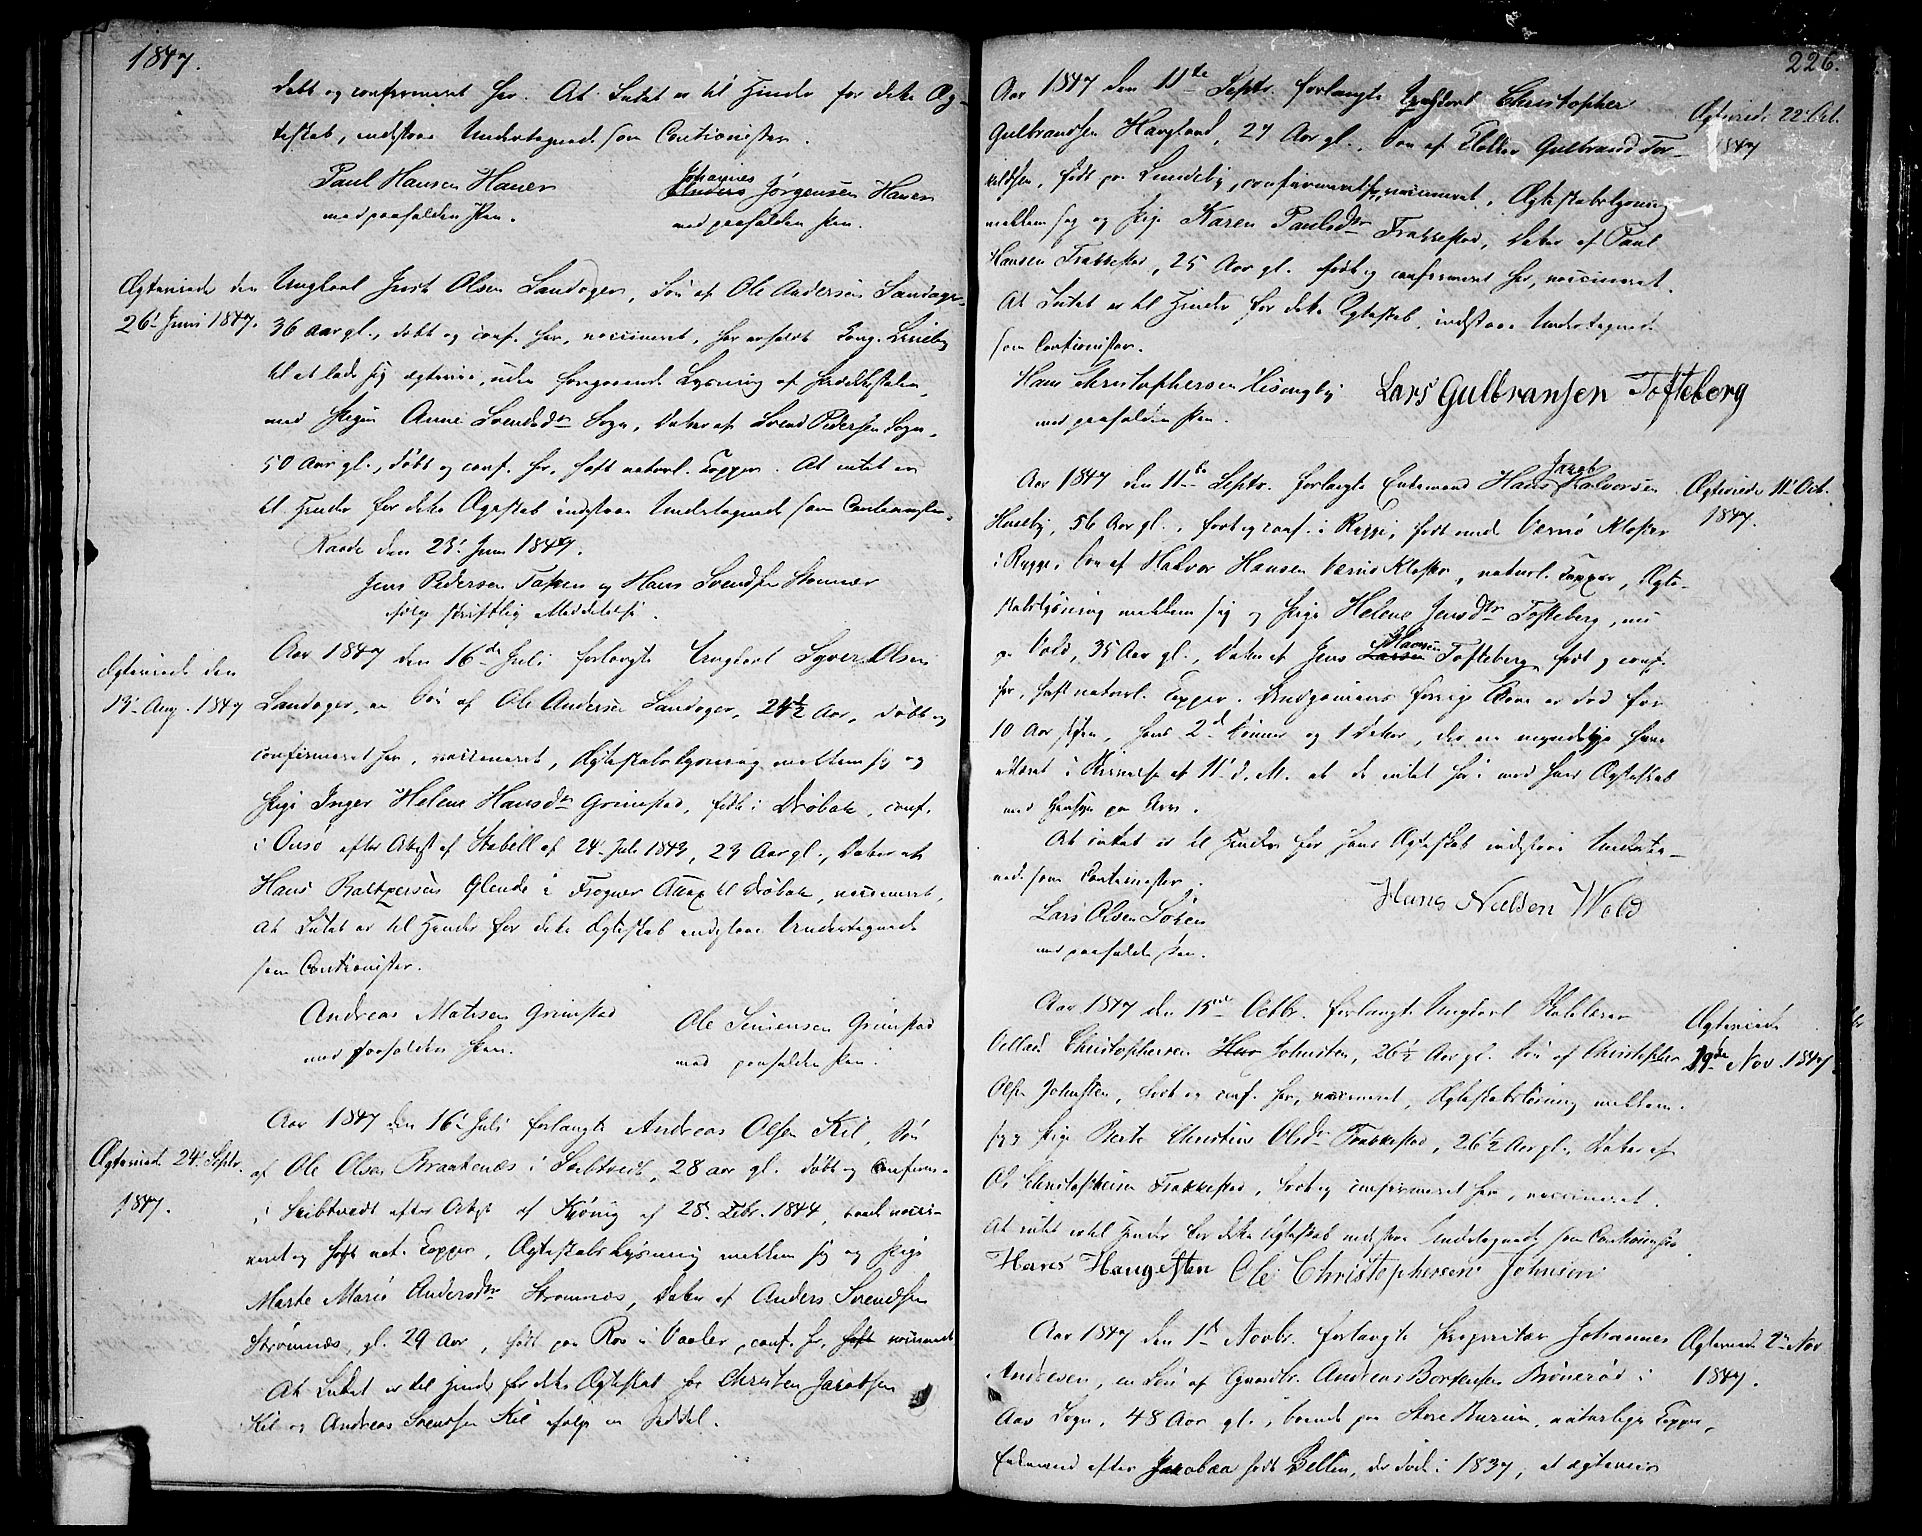 1847.
døbt og confirmeret her. At Intet er til Hinder for dette Æg-
teskab, indestaae Undertegnede som Cautionister.
Paul Hansen Hauer
med paaholden Pen.
Johannes
Anders Jørgensen Hauer
med paaholden Pen.
Ægteviede den
26' Juni 1847.
Ungkarl Olsen Sandager, Søn af Ole Andersen Sandager
36 Aar gl., døbt og conf. her, vaccineret, har erholdt
til at lade sig ægtevie, uden foregaaende Lysning af Prædikestolen,
med Pigen Anne Svendsdr Sogn, Datter af Svend Pedersen Sogn,
50 Aar gl., døbt og conf. her, haft naturl. Kopper. At intet er
til Hinder for dette Ægteskab indestaae Undertegnede som Cautionister.
Raade den 25' Juni 1847.
Jens Pedersen og Hans Svendsen Strømnes
ifølge skriftlig Meddelelse.
Ægteviede den
19' Aug. 1847
Aar 1847 den 16de Juli forlangte Ungkarl Syver Olsen
Sandager, en Søn af Ole Andersen Sandager, 24½ Aar, døbt og
confirmeret her, vaccineret, Ægteskabslysning mellem sig og
Pige Inger Helene Hansdr Grimstad, født i Drøbak, conf.
i Onsø efter Attest af Stabell af 24' Juli 1843, 23 Aar gl., Datter af
Hans Baltzersen Glende i Frogner Annex til Drøbak, vaccineret.
At Intet er til Hinder for dette Ægteskab indestaae Undertegnede
som Cautionister.
Andreas Matisen Grimstad
med paaholden Pen.
Ole Simensen Grimstad
med paaholden Pen.
Ægteviede 24' Septr.
1847.
Aar 1847 den 16' Juli forlangte Andreas Olsen Kil, Søn
af Ole Olsen Braatenæs i Skibtvedt, 28 Aar gl. døbt og confirm.
i Skibtvedt efter Attest af Kønig af 25' Febr. 1844, vacci-
neret og haft nat. Kopper, Ægteskabslysning mellem sig og Pige
Marte Marie Andersdtr Strømnæs, Datter af Anders Svendsen
Strømnæs, gl. 29 Aar, født paa Roe i Vaaler, conf. her, haft vaccineret
At Intet er til Hinder for dette Ægteskab for Christen Jacobsen
Kil og Andreas Svendsen Kil ifølge en Seddel.
226.
Aar 1847 den 11te Septr. forlangte Ungkarl Christopher
Gulbrandsen Haugland, 27 Aar gl., Søn af Gulbrand Tor-
kildsen, født paa Lundeby, confirmeret her, vaccineret, Ægteskabslysning
mellem sig og Pige Karen Paulsdtr Frakkestad, Datter af Paul
Hansen Frakkestad, 25 Aar gl. født og confirmeret her, vaccineret.
At Intet er til Hinder for dette Ægteskab, indestaae Undertegnede
som Cautionister.
Hans Christophersen Hisangby
med paaholden Pen.
Lars Gulbransen Tofteberg
Ægteviede 22' Oct.
1847
Aar 1847 den 11te Septr. forlangte Enkemand Hans Jacob Halvorsen
Huseby, 56 Aar gl., født og conf. i Rygge, født under Værnø Kloster
i Rygge, Søn af Halvor Hansen Værnø Kloster, naturl. Kopper, Ægte-
skabslysning mellem sig og Pige Helene Jensdtr Tofteberg, nu
paa Vold, 35 Aar gl., Datter af Jens Larsen Hansen Tofteberg, født og conf.
her, haft naturl. Kopper. Brudgommens forrige Kone er død for
10 Aar siden, hans 2de Sønner og 1 Datter, der ere myndige have
erklæret i Skrivelse af 11' d. M. at de intet har imod hans Ægteskab
med Hensyn paa Arv.
At intet er til Hinder for hans Ægteskab indestaae Underteg-
nede som Cautionister.
Lars Olsen Løken
med paaholden Pen.
Hans Nielsen Wold
Ægteviede 11' Oct.
1847.
Aar 1847 den 15de Octbr. forlangte Ungkarl
Christophersen Johnsten, 26½ Aar gl. Søn af Christopher
Olsen Johnsten, født og conf. her, vaccineret, Ægteskabslysning mellem
sig og Pige Berte Christine Olsdtr Frakkestad, 26½ Aar gl., Datter af
Ole Christophersen Frakkestad, født og confirmeret her, vaccineret.
At intet er til Hinder for dette Ægteskab indestaae Undertegnede som Cautionister
Hans Haugesten Ole Christophersen Johnsen
Ægteviede
19de Nov. 1847
Aar 1847 den 1ste Novbr. forlangte Proprietær Johannes
Andresen, en Søn af Gaardbr. Andreas Borkersen Brønerød i
Aas Sogn, 48 Aar gl., boende paa Store Burum, naturlige Kopper,
Enkemand efter Jacobaa født Bellin, der døde i 1837, at ægtevies
Ægteviede 2' Nov
1847.